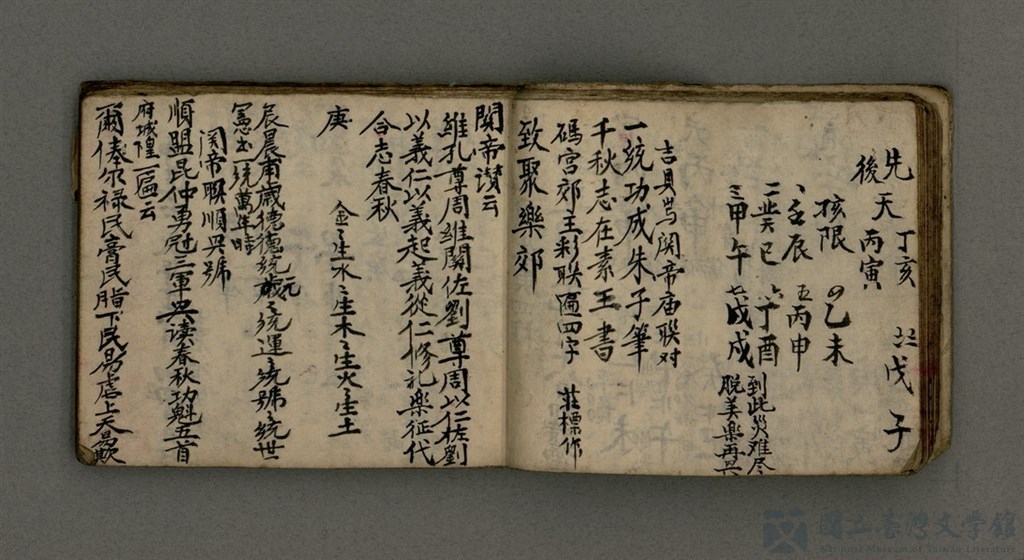 先天 丁亥 戊子
後 丙寅
核限 四乙未
一壬辰 五丙申
二癸巳 六丁酉
三甲午 七戊戌 到此災难尽
脱美樂再共
吉貝嶼関帝庙联对
一統功成朱子筆
千秋志在素王書
碼宮郊主彩联匾四字 莊標作
致聚樂郊
関帝讃云
維孔尊周維關佐劉尊周以仁佐劉
以義仁以義起義從仁修礼樂征代
合志春秋
金生水水生木木生火火生土
庚
辰晨甫歲德德統歲元統運統號統世
憲書一統萬年時
関帝联順吳號
順盟昆仲勇冠三軍與读春秋功魁五首
府城隍一匾云
爾俸尔禄民膏民脂下民易虐上天易欺
國立臺灣文學館
National Museum of Taiwan Literature